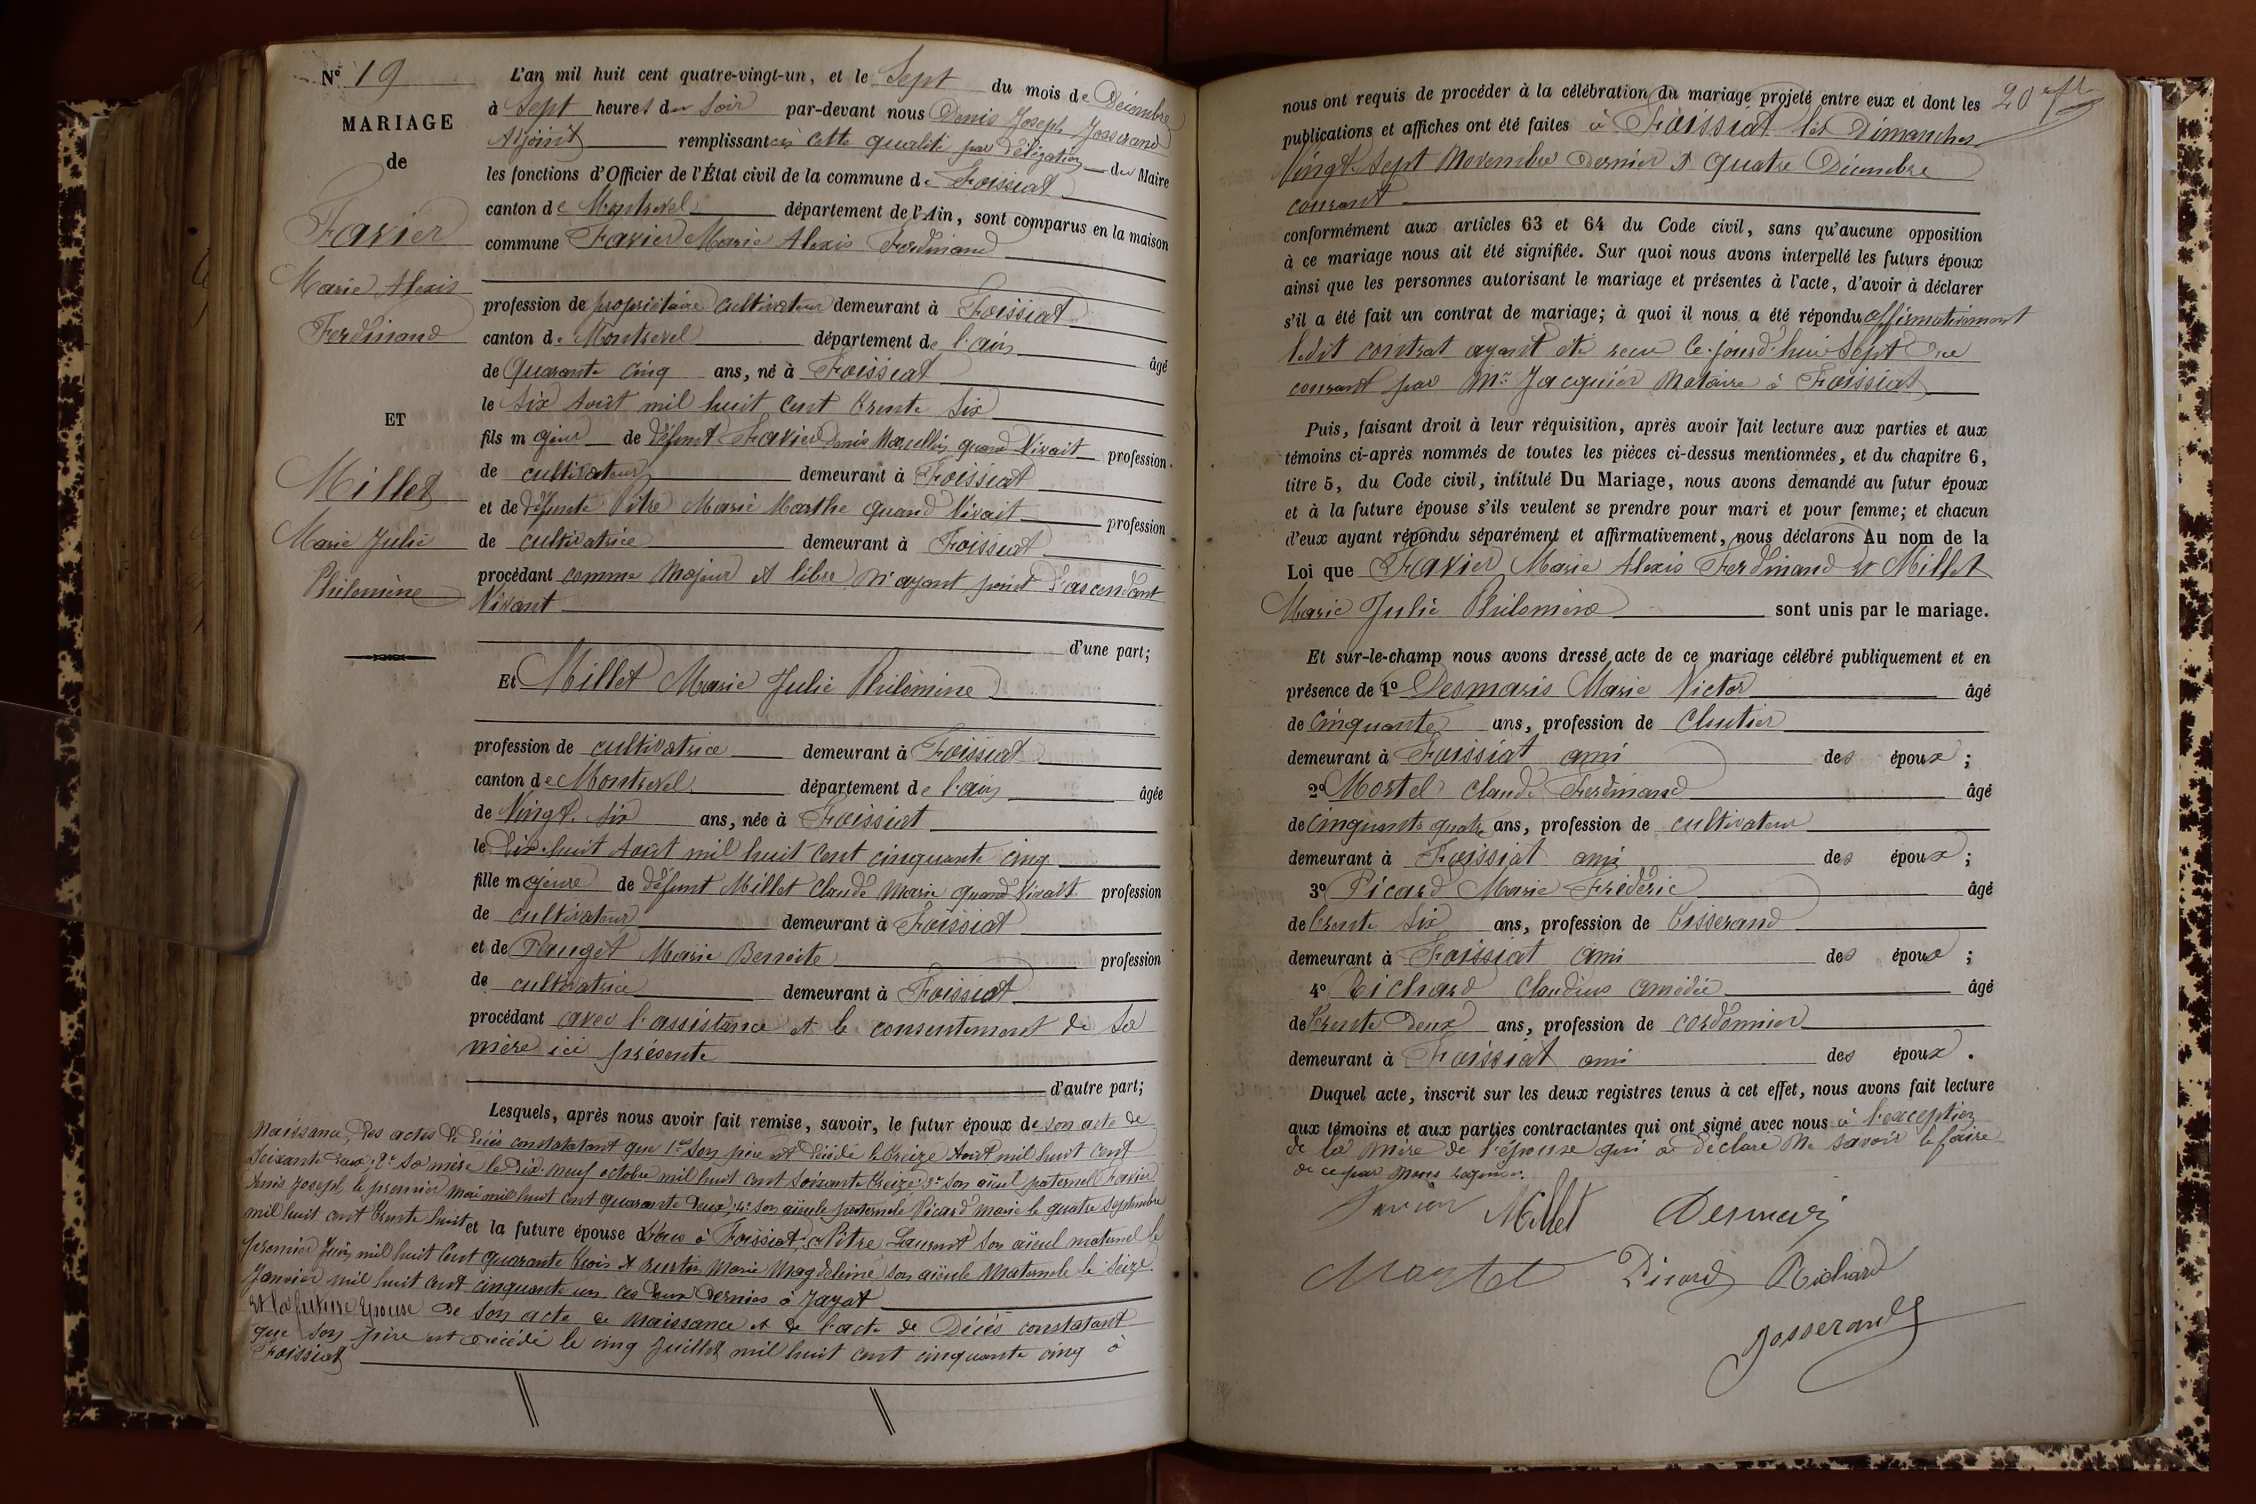 N° 19
MARIAGE
de
Favier
Marie Alexis
Ferdinand
ET
Millet
Marie Julie
Philomène
L'an mil huit cent quatre-vingt-un, et le Sept du mois de Décembre
à Sept heures du Soir par-devant nous Denis Joseph Josserand
Adjoint remplissant en cette qualité par délégation du Maire
les fonctions d'Officier de l'État civil de la commune de Foissiat
canton de Montrevel département de l'Ain, sont comparus en la maison
commune Favier Marie Alexis Ferdinand
profession de propriétaire cultivateur demeurant à Foissiat
canton de Montrevel département de l'ain âgé
de Quarante cinq ans, né à Foissiat
le Six Août mil huit cent trente Six
fils majeur de défunt Favier Denis Marcellin quand Vivait profession
de cultivateur demeurant à Foissiat
et de défunte Pitre Marie Marthe quand Vivait profession
de cultivatrice demeurant à Foissiat
procédant comme Majeur et libre n'ayant point d'ascendant
Vivant
d'une part;
Et Millet Marie Julie Philomine
profession de cultivatrice demeurant à Foissiat
canton de Montrevel département de l'ain âgée
de Vingt Six ans, née à Foissiat
le Dix huit Aout mil huit Cent cinquante cinq
fille majeure de défunt Millet Claude Marie quand Vivait profession
de cultivateur demeurant à Foissiat
et de Pauget Marie Benoite profession
de cultivatrice demeurant à Foissiat
procédant avec l'assistance et le consentement de Sa
mère ici présente
d'autre part;
Lesquels, après nous avoir fait remise, savoir, le futur époux de son acte de
Naissance, des actes de Décès constatatant que 1ent Son père est décédé le treize Aout mil huit cent
Soixante deux; 2e Sa mère le dix-neuf octobre mil huit cent Soixante treize; 3e Son aïeul paternel Favier
Denis Joseph le premier Mai mil huit cent quarante deux; 4e Son aïeule paternelle Picard Marie le quatre Septembre
mil huit cent trente huit et la future épouse d tous à Foissiat; Pitre Laurent Son aïeul maternel le
premier Juin mil huit Cent quarante trois et Marie Magdeleine Son aïeule Maternelle le Seize
Janvier mil huit cent cinquante un ces deux derniers à Jayat
Et la future épouse de Son acte de Naissance et de l'acte de Décès constatant
que Son père est décédé le cinq Juillet mil huit cent cinquante cinq à
Foissiat
20
nous ont requis de procéder à la célébration du mariage projeté entre eux et dont les
publications et affiches ont été faites à Foissiat les Dimanches
Vingt Sept Novembre Dernier et quatre Décembre
courant
conformément aux articles 63 et 64 du Code civil, sans qu'aucune opposition
à ce mariage nous ait été signifiée. Sur quoi nous avons interpellé les futurs époux
ainsi que les personnes autorisant le mariage et présentes à l'acte, d'avoir à déclarer
s'il a été fait un contrat de mariage; à quoi il nous a été répondu affirmativement
ledit contrat ayant été recu Ce jourd'hui Sept Du
courant par Mre Jacquier Notaire à Foissiat
Puis, faisant droit à leur réquisition, après avoir fait lecture aux parties et aux
témoins ci-après nommés de toutes les pièces ci-dessus mentionnées, et du chapitre 6,
titre 5, du Code civil, intitulé Du Mariage, nous avons demandé au futur époux
et à la future épouse s'ils veulent se prendre pour mari et pour femme; et chacun
d'eux ayant répondu séparément et affirmativement, nous déclarons Au nom de la
Loi que Favier Marie Alexis Ferdinand et Millet
Marie Julie Philomène sont unis par le mariage.
Et sur-le-champ nous avons dressé acte de ce mariage célébré publiquement et en
présence de 1° Desmaris Marie Victor âgé
de Cinquante ans, profession de
demeurant à Foissiat ami des époux;
2° Mortel Claude Ferdinand âgé
de Cinquante quatre ans, profession de cultivateur
demeurant à Foissiat ami des époux;
3° Picard Marie Frédéric âgé
de trente Six ans, profession de tisserand
demeurant à Foissiat ami des époux;
4° Richard Claudius Amédée âgé
de trente deux ans, profession de cordonnier
demeurant à Foissiat ami des époux.
Duquel acte, inscrit sur les deux registres tenus à cet effet, nous avons fait lecture
aux témoins et aux parties contractantes qui ont signé avec nous à l'exception
de la mère de l'épouse qui a déclaré Ne Savoir le faire
de ce par Nous requise.
Favier Millet Desmaris
Mortel Picard Richard
Josserand